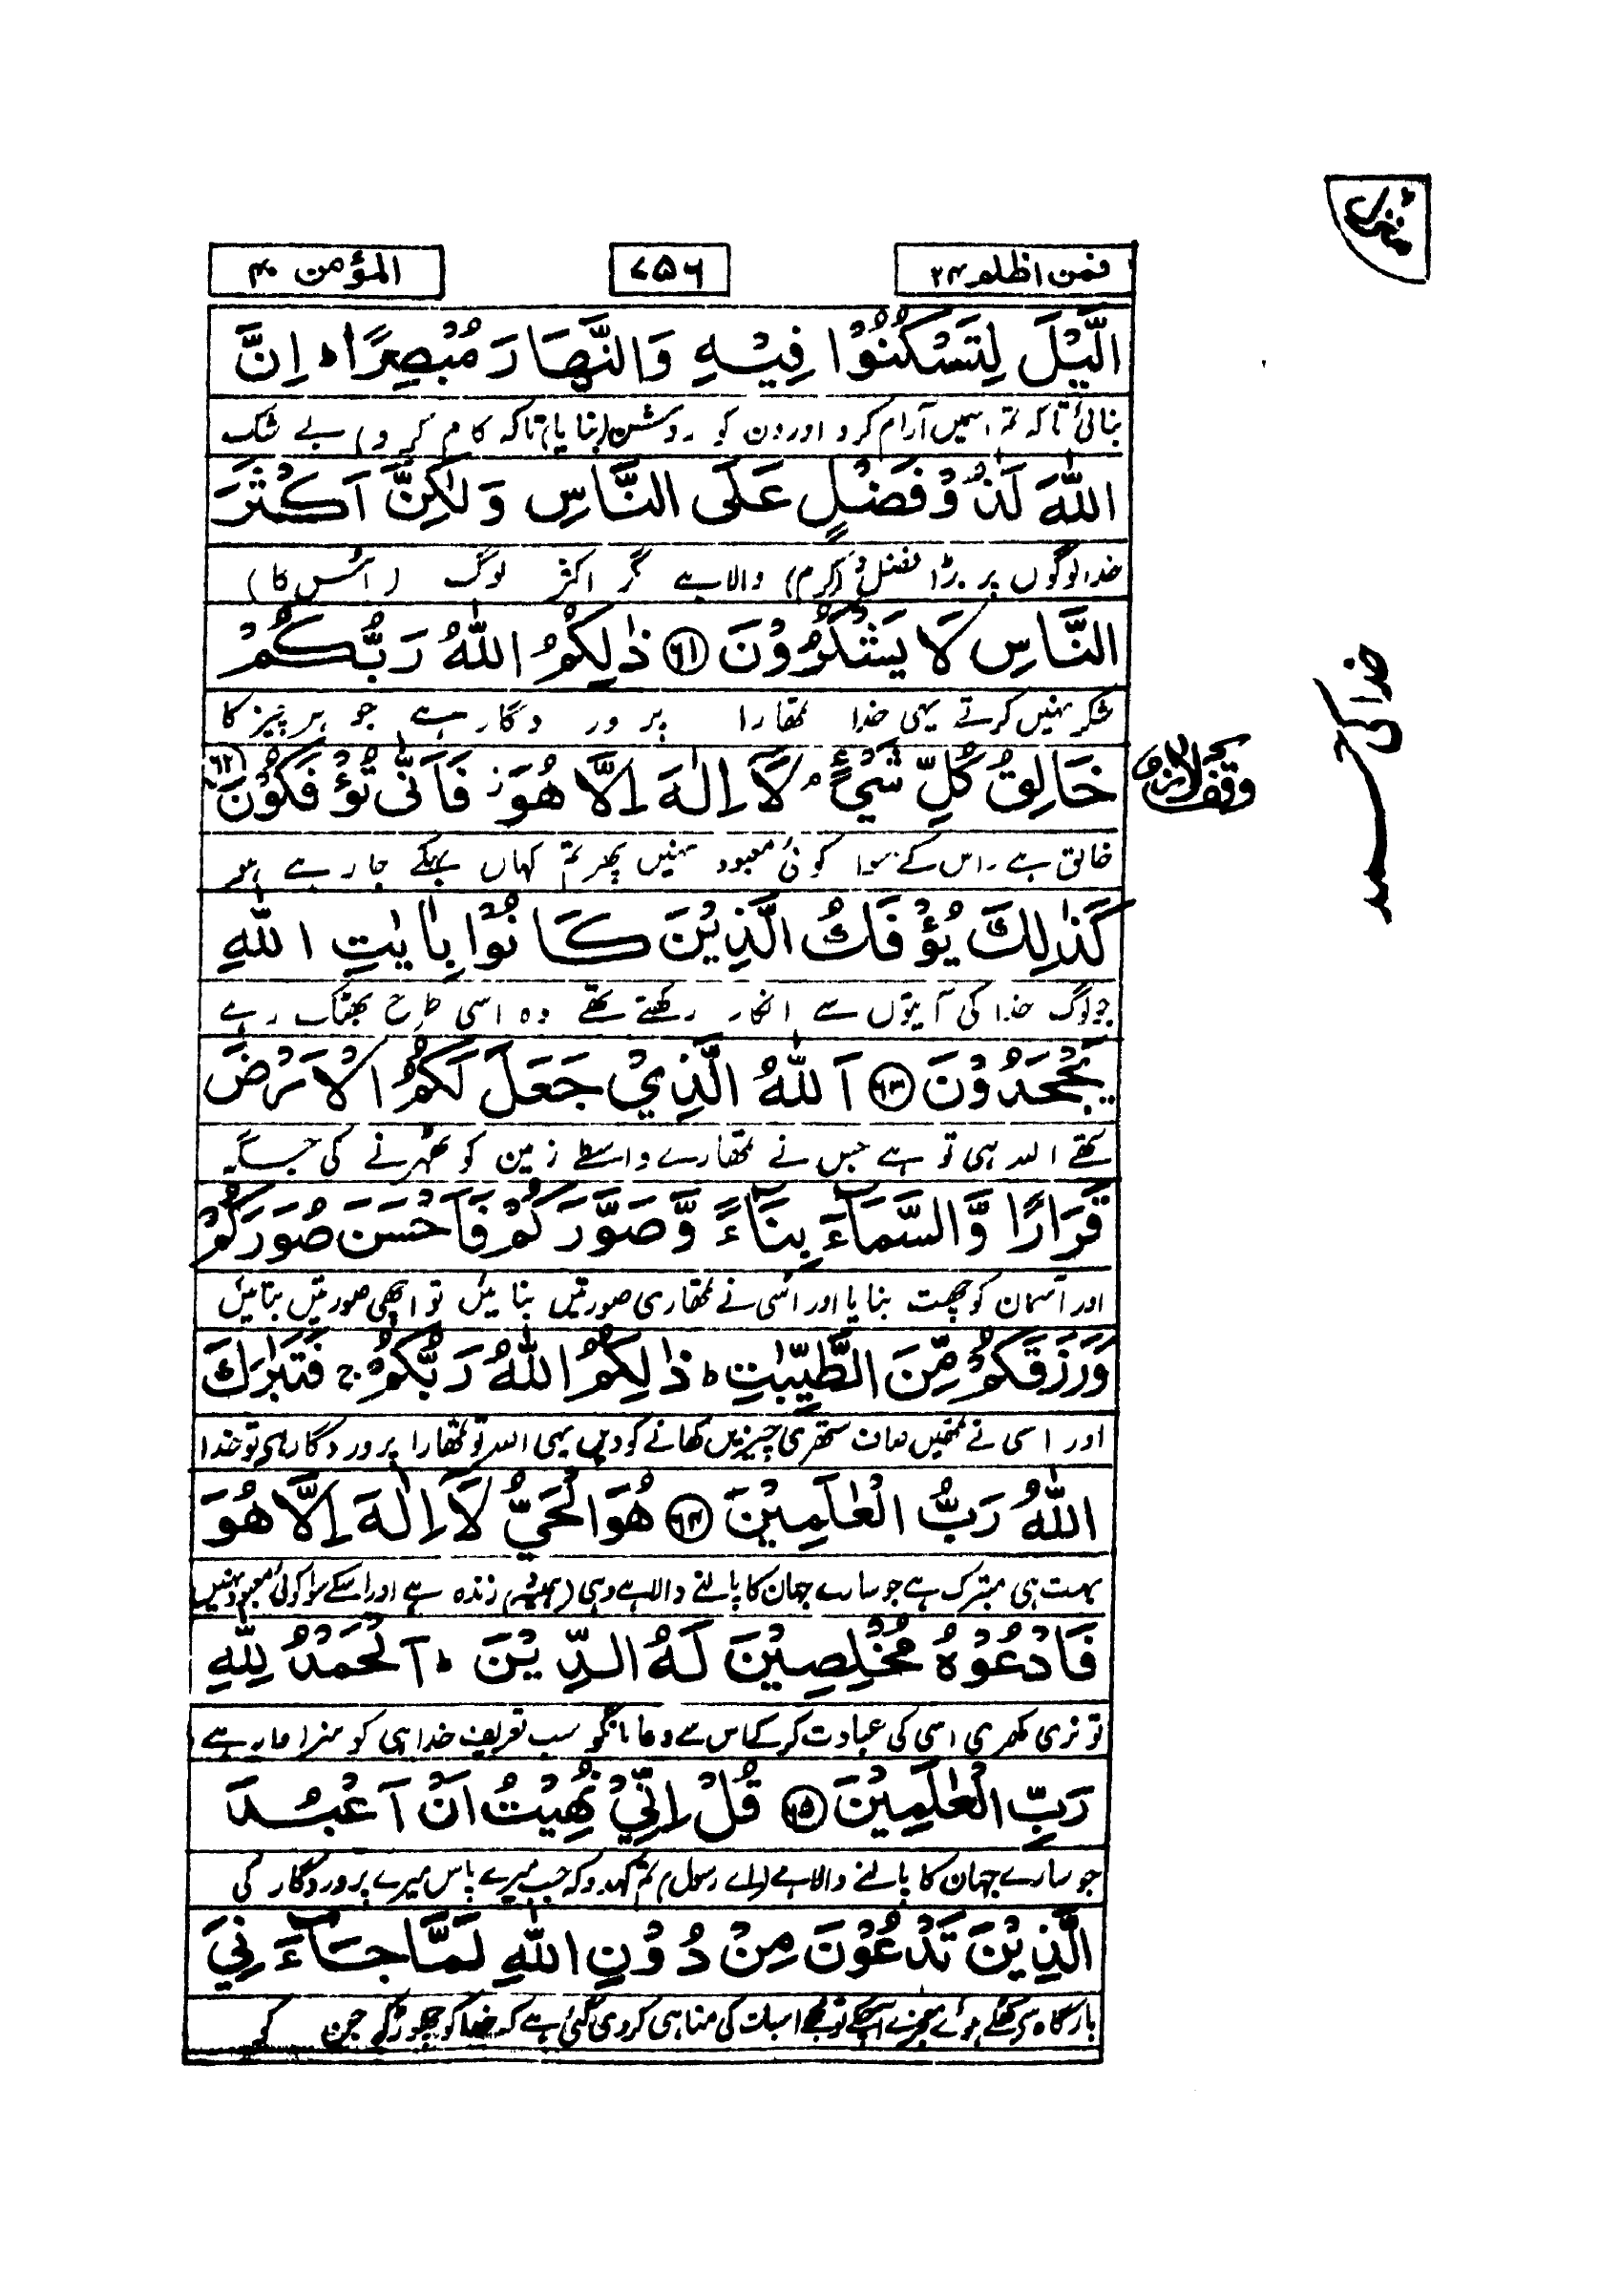 منزل
فمن اظلم ۲۴
۷۵۶
المؤمن ۴۰
الَّيْلَ لِتَسْكُنُوْا فِيْهِ وَالنَّهَارَ مُبْصِرًا ؕ اِنَّ
بنائی تاکہ تم اسمیں آرام کرو اور دن کو روشن (بنایا) تاکہ کام کرو) بے شک
اللّٰهَ لَذُوْ فَضْلٍ عَلَى النَّاسِ وَلٰكِنَّ اَكْثَرَ
خدا لوگوں پر بڑا فضل و (کرم) والا ہے مگر اکثر لوگ (اس کا)
النَّاسِ لَا يَشْكُرُوْنَ ۶۱ ذٰلِكُمُ اللّٰهُ رَبُّكُمْ
شکر نہیں کرتے یہی خدا تمھارا پرور دگار ہے جو ہر چیز کا
خَالِقُ كُلِّ شَيْءٍ ۘ لَاۤ اِلٰهَ اِلَّا هُوَ ۫ فَاَنّٰى تُؤْفَكُوْنَ ۶۲
وقف لازم
خالق ہے۔ اس کے سوا کوئی معبود نہیں پھر تم کہاں بہکے جا رہے ہو
كَذٰلِكَ يُؤْفَكُ الَّذِيْنَ كَانُوْا بِاٰيٰتِ اللّٰهِ
جو لوگ خدا کی آیتوں سے انکار رکھتے تھے وہ اسی طرح بھٹک رہے
يَجْحَدُوْنَ ۶۳ اَللّٰهُ الَّذِيْ جَعَلَ لَكُمُ الْاَرْضَ
تھے اللہ ہی تو ہے جس نے تمھارے واسطے زمین کو ٹھہرنے کی جگہ
قَرَارًا وَّالسَّمَآءَ بِنَآءً وَّصَوَّرَكُمْ فَاَحْسَنَ صُوَرَكُمْ
اور آسمان کو چھت بنایا اور اسی نے تمھاری صورتیں بنائیں تو اچھی صورتیں بنائیں
وَرَزَقَكُمْ مِّنَ الطَّيِّبٰتِ ؕ ذٰلِكُمُ اللّٰهُ رَبُّكُمْ ۚ فَتَبٰرَكَ
اور اسی نے تمھیں صاف ستھری چیزیں کھانے کو دیں یہی اللہ تو تمھارا پروردگار ہی تو خدا
اللّٰهُ رَبُّ الْعٰلَمِيْنَ ۶۴ هُوَ الْحَيُّ لَاۤ اِلٰهَ اِلَّا هُوَ
بہت ہی متبرک ہے جو سارے جہان کا پالنے والا ہے وہی (ہمیشہ) زندہ ہے اور اسکے سوا کوئی معبود نہیں
فَادْعُوْهُ مُخْلِصِيْنَ لَهُ الدِّيْنَ ؕ اَلْحَمْدُ لِلّٰهِ
تو نری کھری اسی کی عبادت کرکے اس سے دعا مانگو سب تعریف خدا ہی کو سزاوار ہے
رَبِّ الْعٰلَمِيْنَ ۶۵ قُلْ اِنِّيْ نُهِيْتُ اَنْ اَعْبُدَ
جو سارے جہان کا پالنے والا ہے (اے رسول) تم کہدو کہ جب میرے پاس میرے پروردگار کی
الَّذِيْنَ تَدْعُوْنَ مِنْ دُوْنِ اللّٰهِ لَمَّا جَآءَنِيَ
بارگاہ سے کھلے ہوئے معجزے آچکے تو مجھے اسبات کی مناہی کردی گئی ہے کہ خدا کو چھوڑ کر جن کو
خدا کی حمد